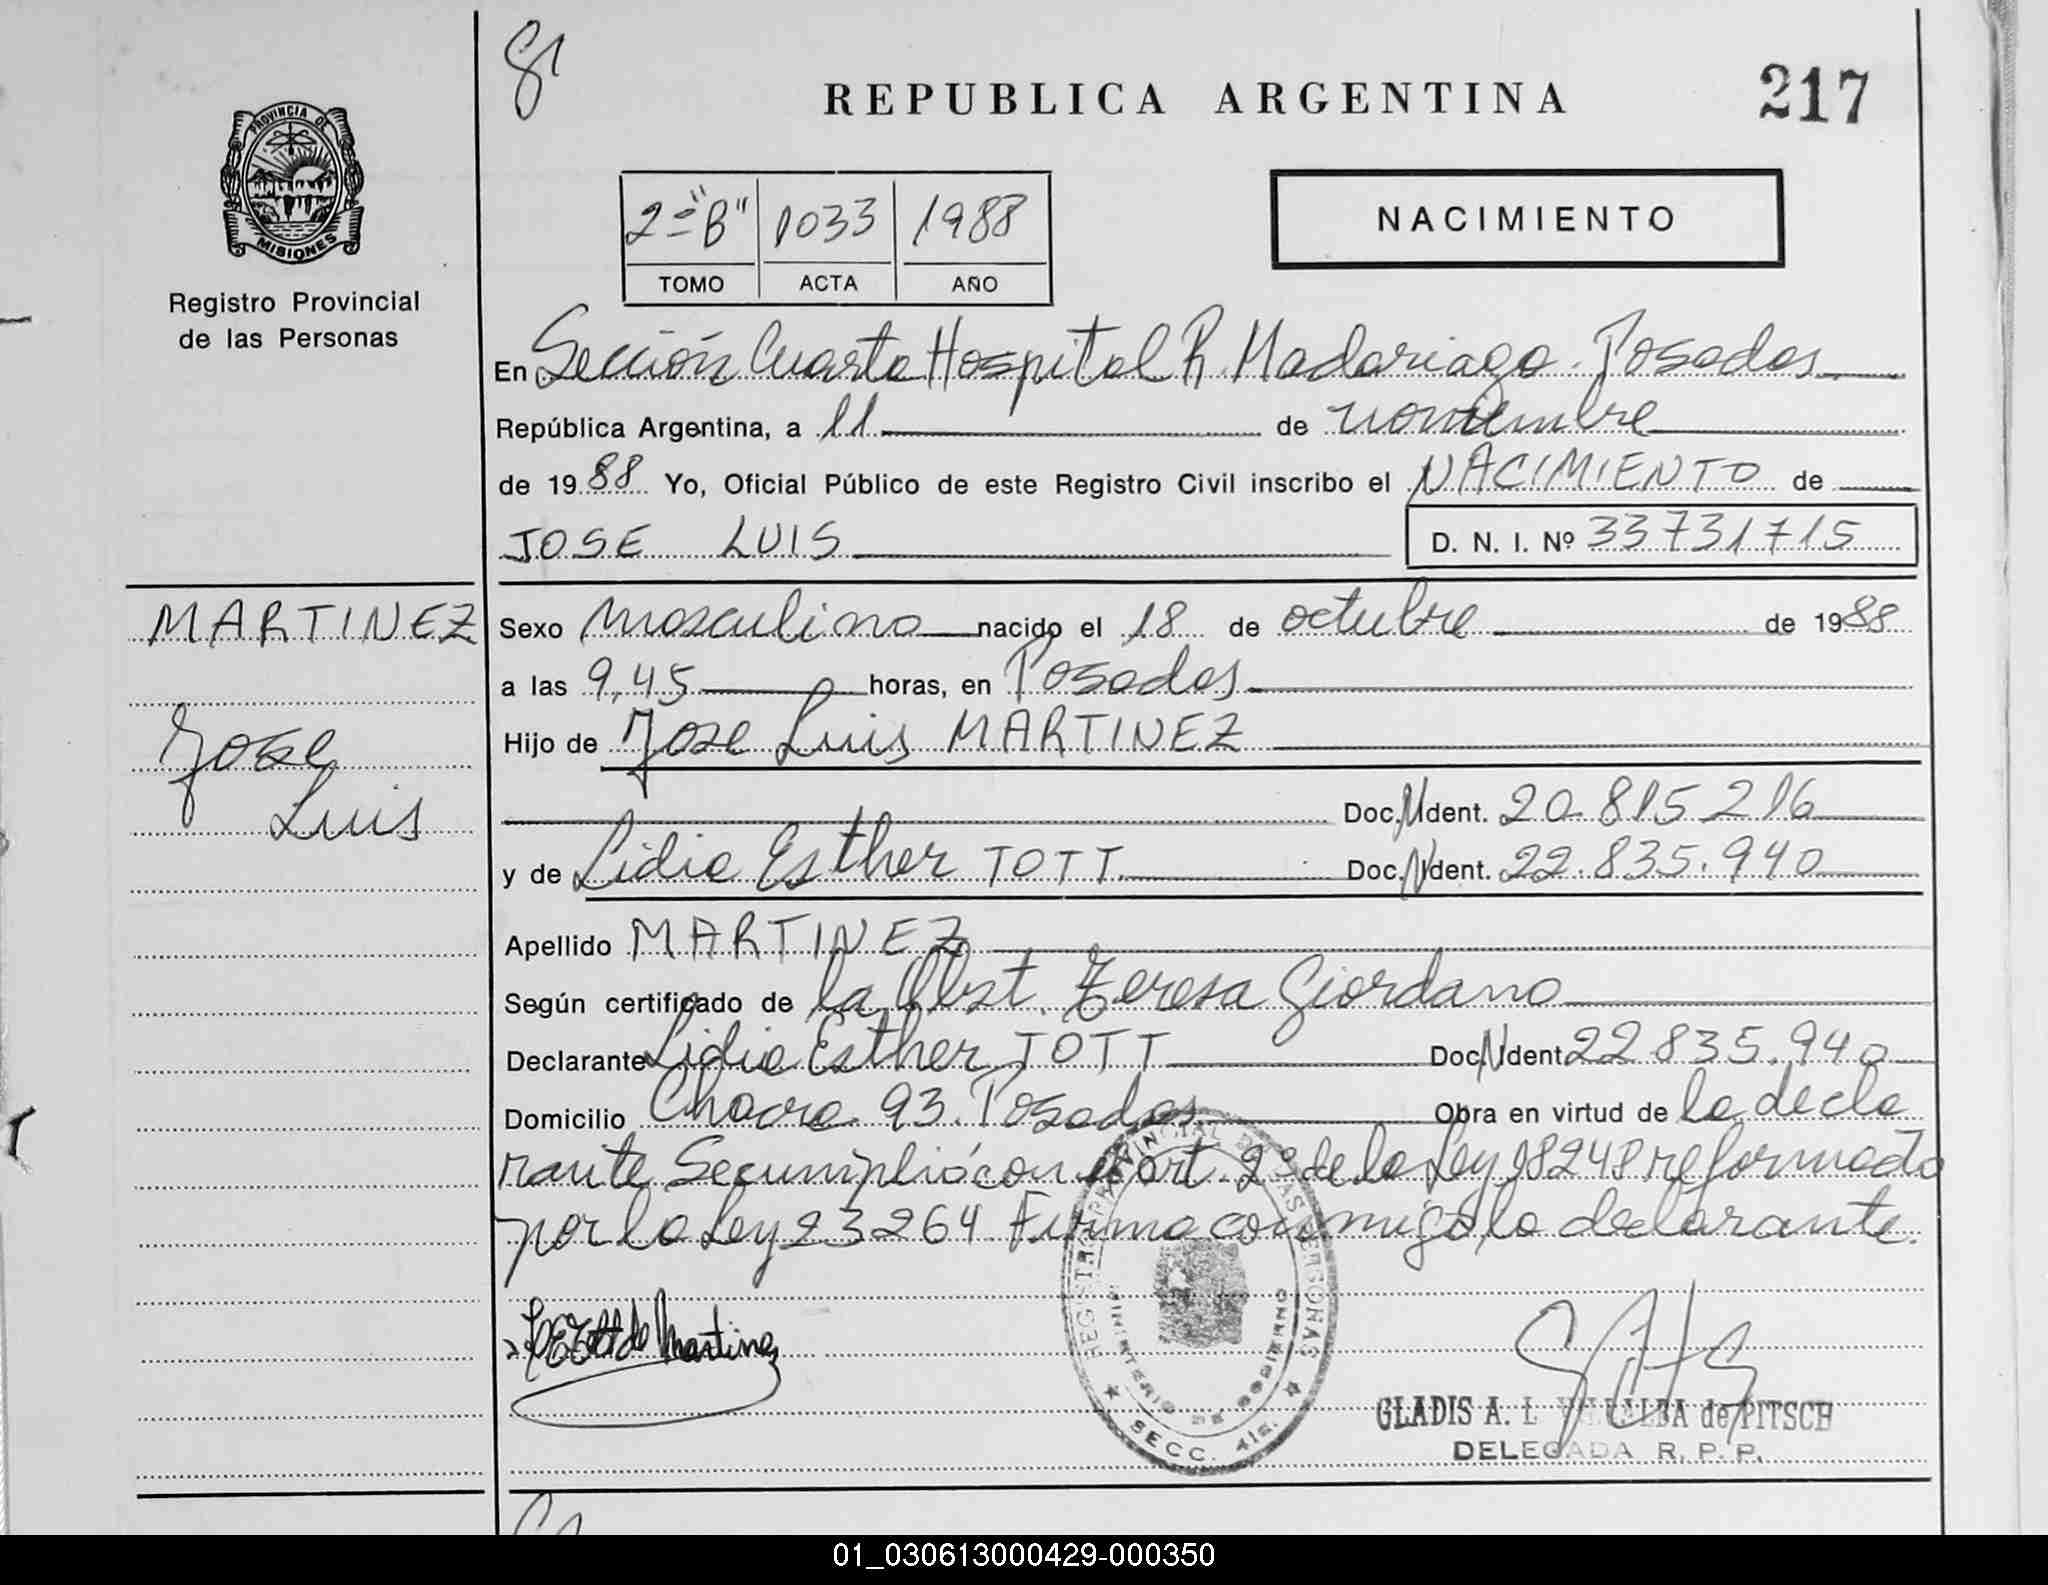 217
REPUBLICA ARGENTINA
PROVINCIA DE
MISIONES
Registro Provincial
de las Personas
2º "B" 1033 1988
TOMO ACTA AÑO
NACIMIENTO
En Sección Cuarta Hospital R. Madariaga. Posadas
República Argentina, a 11 de noviembre
de 1988 Yo, Oficial Público de este Registro Civil inscribo el NACIMIENTO de
JOSE LUIS D. N. I. Nº 33731715
MARTINEZ
Jose
Luis
Sexo masculino nacido el 18 de octubre de 1988
a las 9,45 horas, en Posadas
Hijo de Jose Luis MARTINEZ
Doc. N Ident. 20.815.216
y de Lidia Esther TOTT Doc. N Ident. 22.835.940
Apellido MARTINEZ
Según certificado de la Obst. Teresa Giordano
Declarante Lidia Esther TOTT Doc. N Ident. 22.835.940
Domicilio Chacra 93. Posadas Obra en virtud de la decla
rante Se cumplió con el art. 2º de la Ley 18248 reformada
por la Ley 23264 Firma conmigo, la declarante.
Tott de Martinez
REGISTRO PROVINCIAL DE LAS PERSONAS
MINISTERIO DE GOBIERNO
SECC. 4ta.
GLADIS A. L. VILLALBA de PITSCH
DELEGADA R. P. P.
01_030613000429-000350